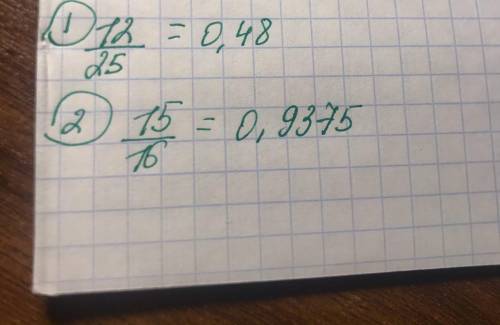 1 12/25 = 0,48
2 15/16 = 0,9375